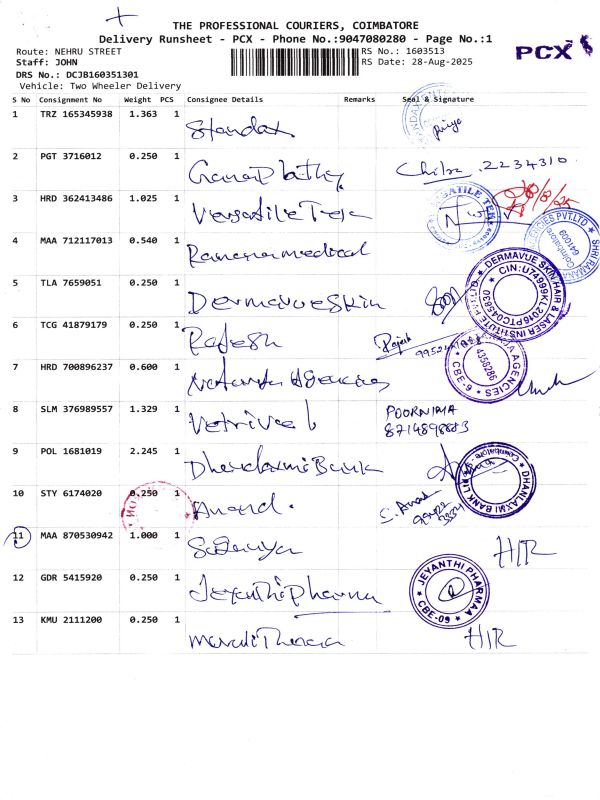 THE PROFESSIONAL COURIERS, COIMBATORE
Delivery Runsheet - PCX - Phone No.:9047080280 - Page No.:1
Route: NEHRU STREET RS No.: 1603513
Staff: JOHN RS Date: 28-Aug-2025
DRS No.: DCJB160351301
Vehicle: Two Wheeler Delivery
PCX
S No Consignment No Weight PCS Consignee Details Remarks Seal & Signature
1 TRZ 165345938 1.363 1 Standax Priya
2 PGT 3716012 0.250 1 2234310
3 HRD 362413486 1.025 1 Versatile 28/8/25
4 MAA 712117013 0.540 1 Ramana medical
AGENCIES PVT.LTD
Coimbatore
641009
5 TLA 7659051 0.250 1 Dermavue Skin
DERMAVUE SKIN HAIR & LASER INSTITUTE PVT.LTD
CIN:U74999KL2016PTC045830
6 TCG 41879179 0.250 1 Rajesh Rajesh
7 HRD 700896237 0.600 1 Agencies
AGENCIES
4358286
CBE-9
8 SLM 376989557 1.329 1 Vetrivel POORNIMA
8714898883
9 POL 1681019 2.245 1 Dhanlaxmi Bank
DHANLAXMI BANK LTD
Coimbatore
10 STY 6174020 0.250 1 Anand. S. Anand
11 MAA 870530942 1.000 1 H/R
12 GDR 5415920 0.250 1 Jeyanthi Pharma
JEYANTHI PHARMAA
CBE-09
13 KMU 2111200 0.250 1 H/R